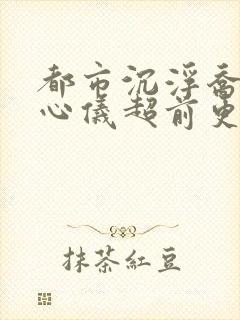 都市沉浮喬
心儀超前更
抹茶紅豆